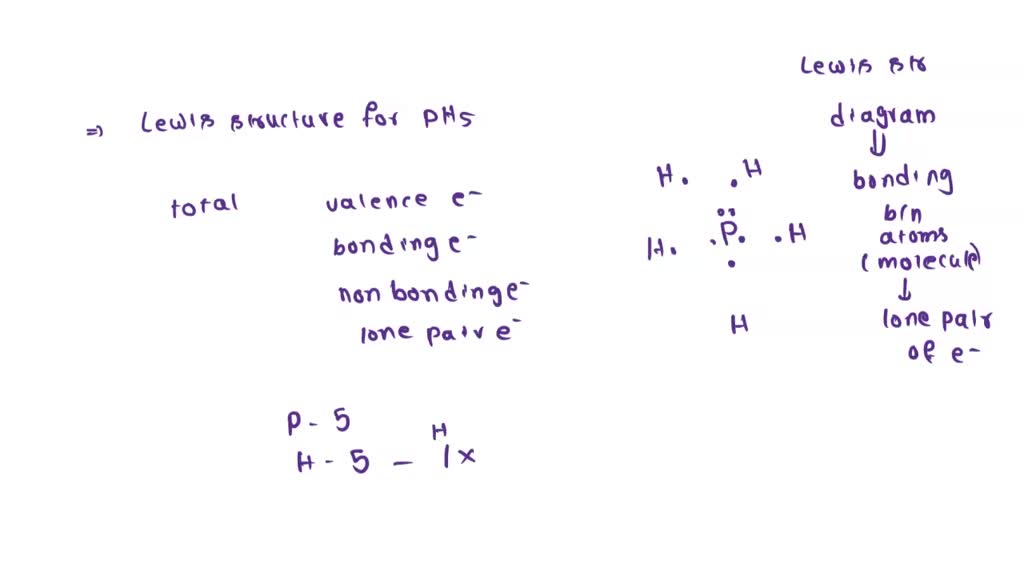 Lewis str
⇒ Lewis structure for PH5
diagram
⇓
total valence e-
bonding e-
non bonding e-
lone pair e-
H. .H
..
H. .P. .H
.
H
bonding
b/n
atoms
(molecule)
↓
lone pair
of e-
P - 5
H
H - 5 - 1x